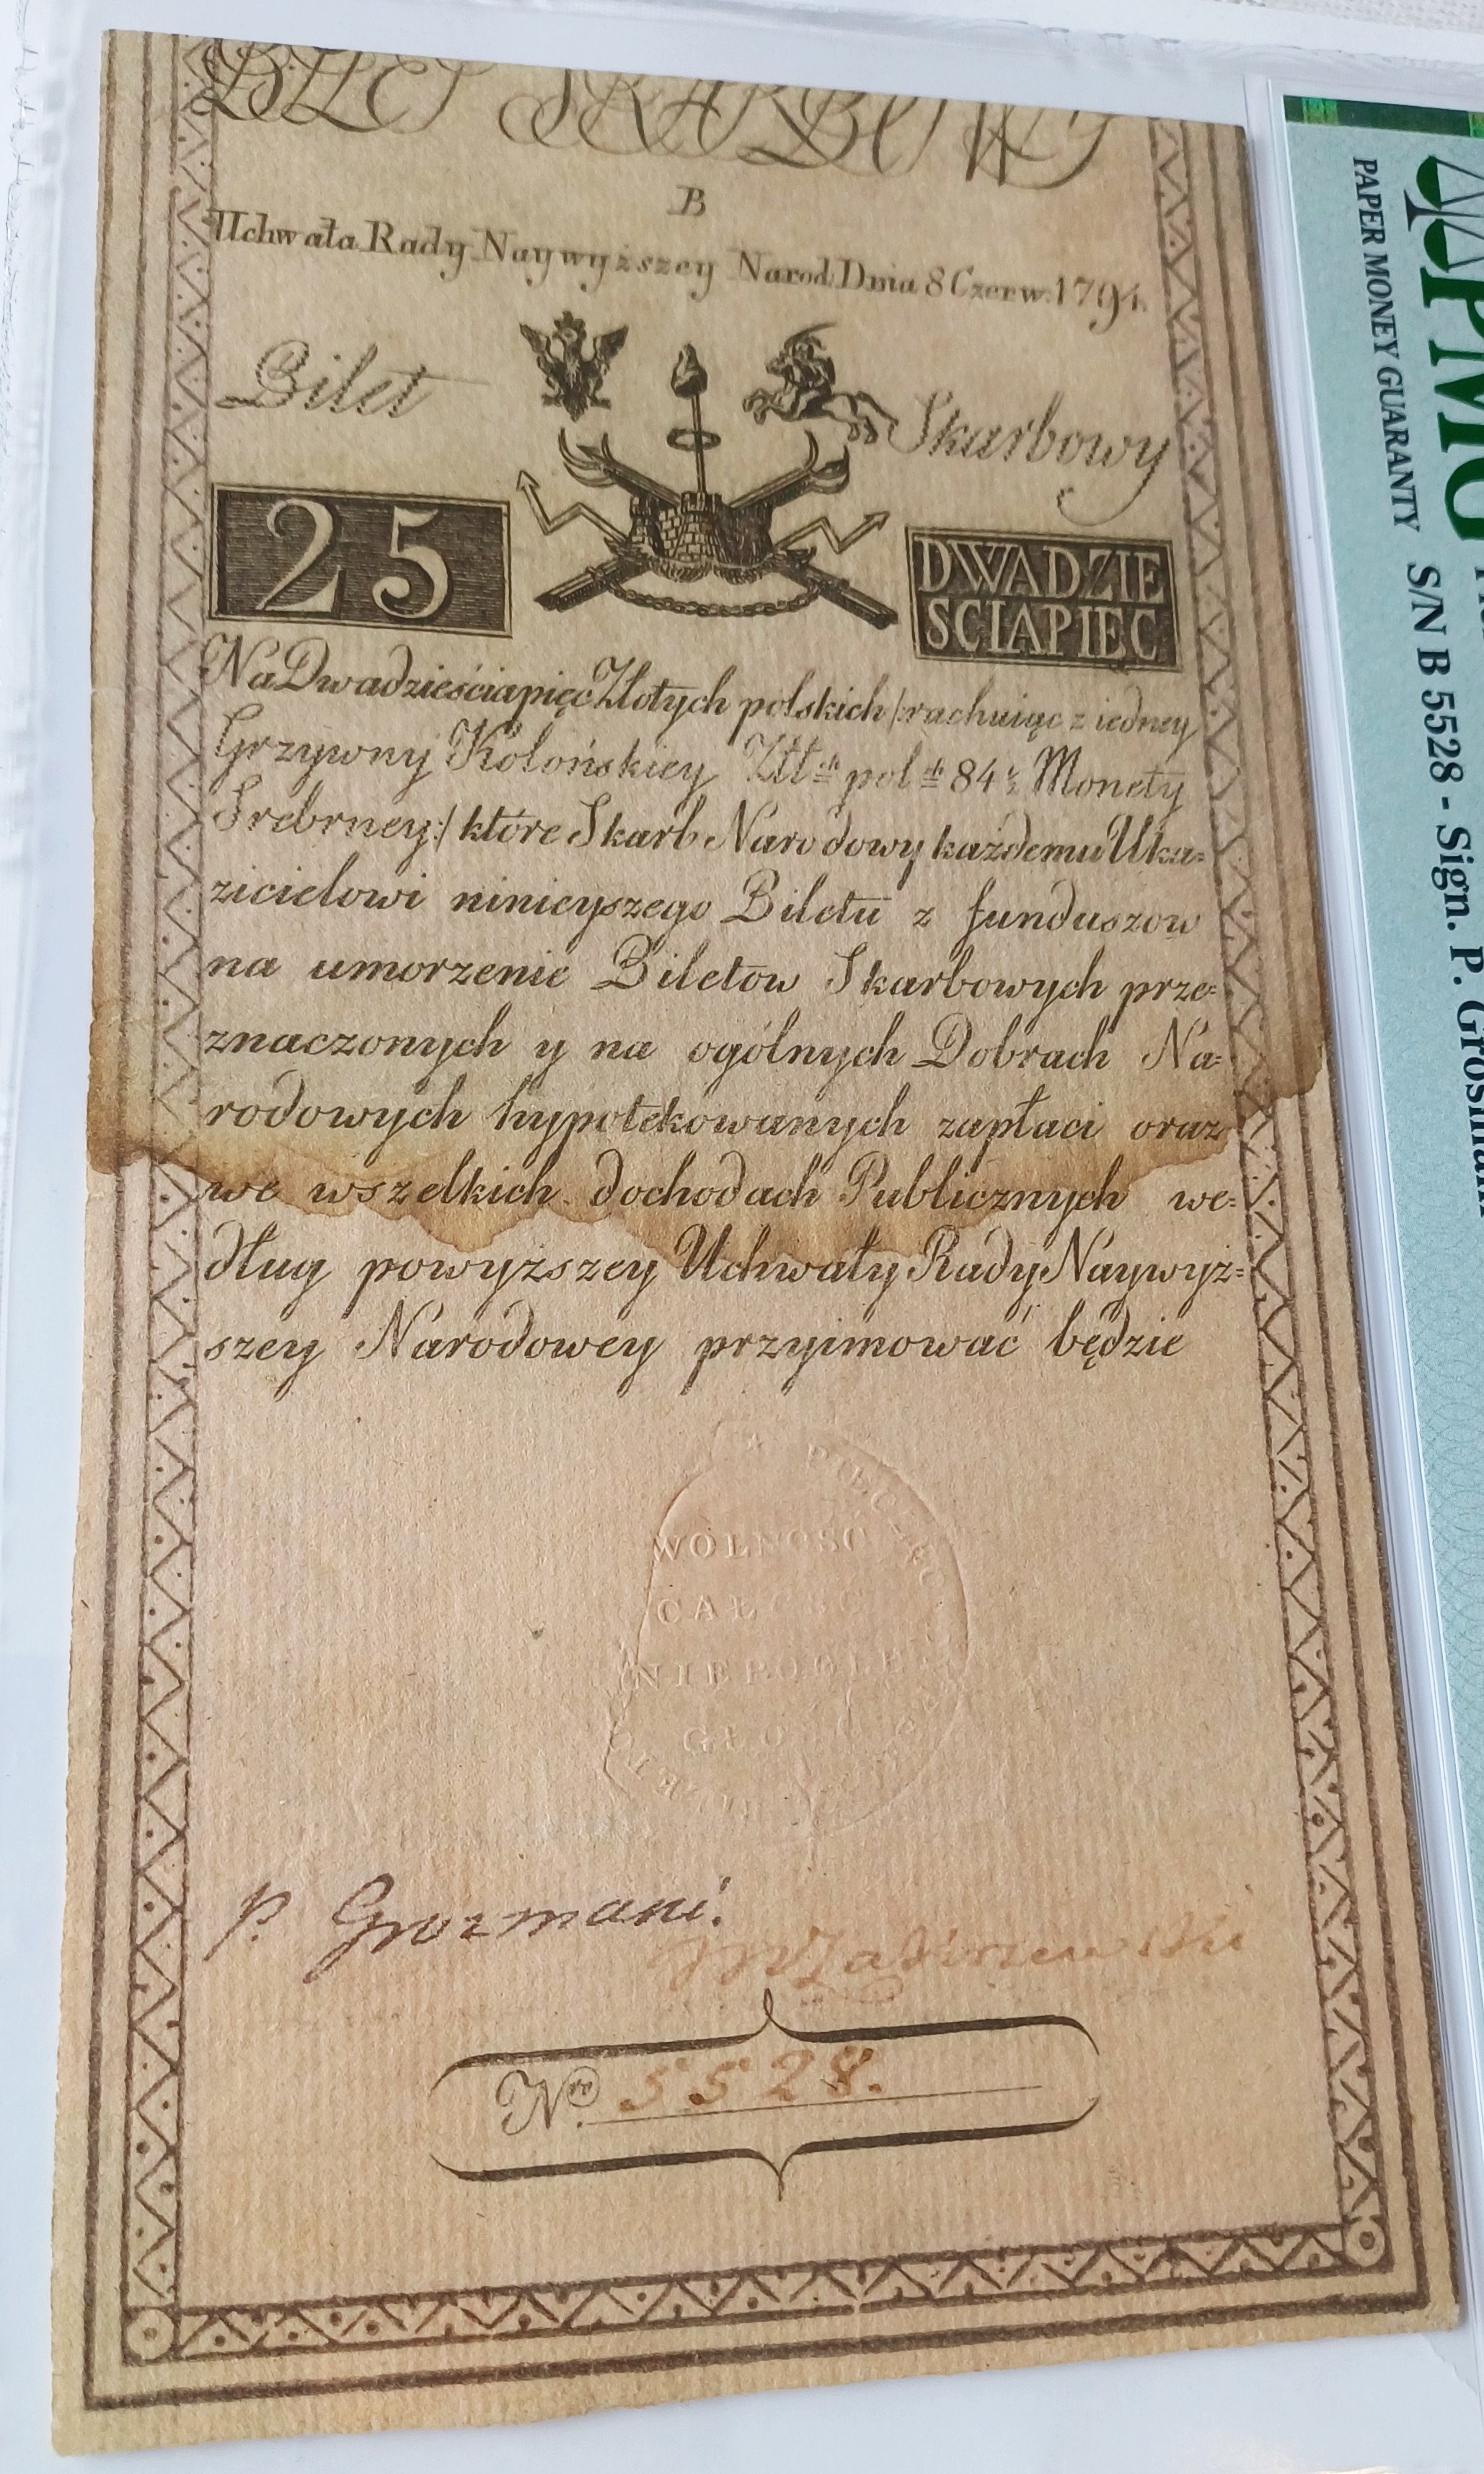 BILET SKARBOWY
B
Uchwała Rady Naywyższey Narod Dnia 8 Czerw. 1794.
Bilet Skarbowy
25
DWADZIE
SCIAPIĘC
Na Dwadzieściapięć Złotych polskich /:rachuiąc z iedney
Grzywny Kolońskiey Złł.ch pol.ch 84½ Monety
Srebrney:/ które Skarb Narodowy każdemu Uka=
zicielowi ninieyszego Biletu z funduszow
na umorzenie Biletow Skarbowych prze=
znaczonych y na ogólnych Dobrach Na=
rodowych hypotekowanych zapłaci oraz
we wszelkich dochodach Publicznych we=
dług powyższey Uchwały Rady Naywyż=
szey Narodowey przyimować będzie
WOLNOSC
CAŁOSC
NIEPODLE
GŁOSC
p. Grozmani.
Nro. 5528.
PMG
PAPER MONEY GUARANTY
S/N B 5528 - Sign. P. Grosmani